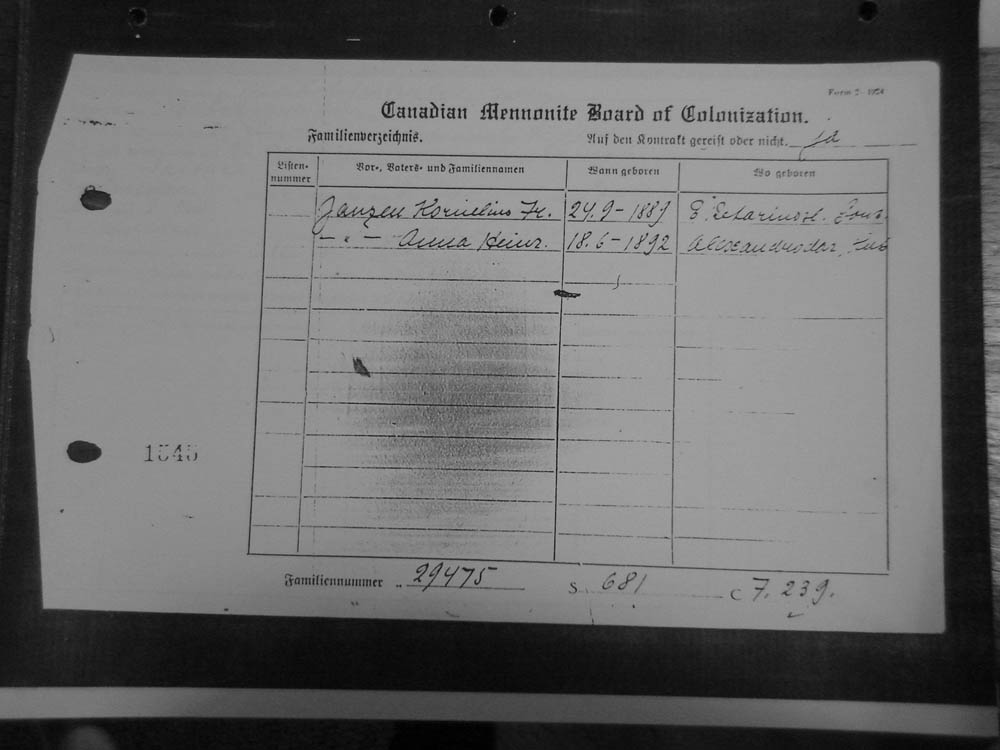 Form 2- 1924
Canadian Mennonite Board of Colonization.
Familienverzeichnis.
Auf den Kontrakt gereist oder nicht. ja
Listen-nummer Vor-, Vaters- und Familiennamen Wann geboren Wo geboren
Janzen Kornelius Fr. 24.9-1889
- " - Anna Heinr. 18.6-1892
1545
Familiennummer 29475 S. 681 C 7.239.